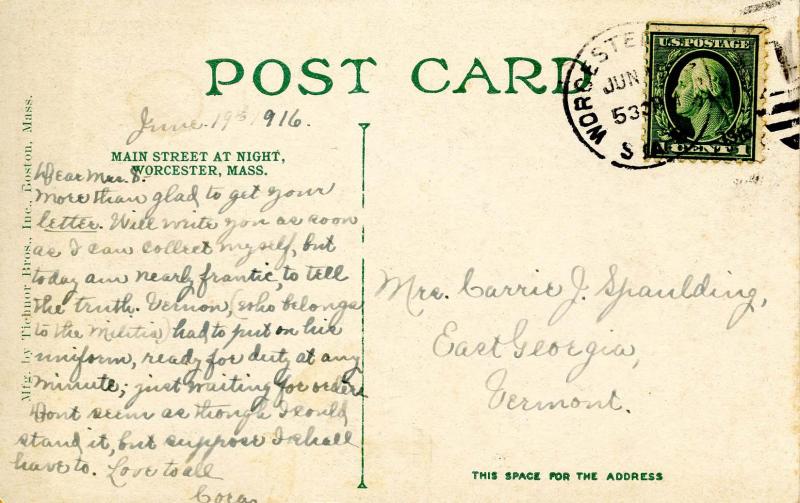 POST CARD
WORCESTER
JUN
530
U.S. POSTAGE
CENTS
June 19th 1916.
MAIN STREET AT NIGHT,
WORCESTER, MASS.
Mfg. by Tichnor Bros., Inc., Boston, Mass.
Dear Mrs. S.
More than glad to get your
letter. Will write you as soon
as I can collect myself, but
today am nearly frantic, to tell
the truth. Vernon, (who belongs
to the Militia) had to put on his
uniform, ready for duty at any
minute; just waiting for orders
Dont seem as though I could
stand it, but suppose I shall
have to. Love to all
Cora
Mrs. Carrie J. Spaulding,
East Georgia,
Vermont.
THIS SPACE FOR THE ADDRESS